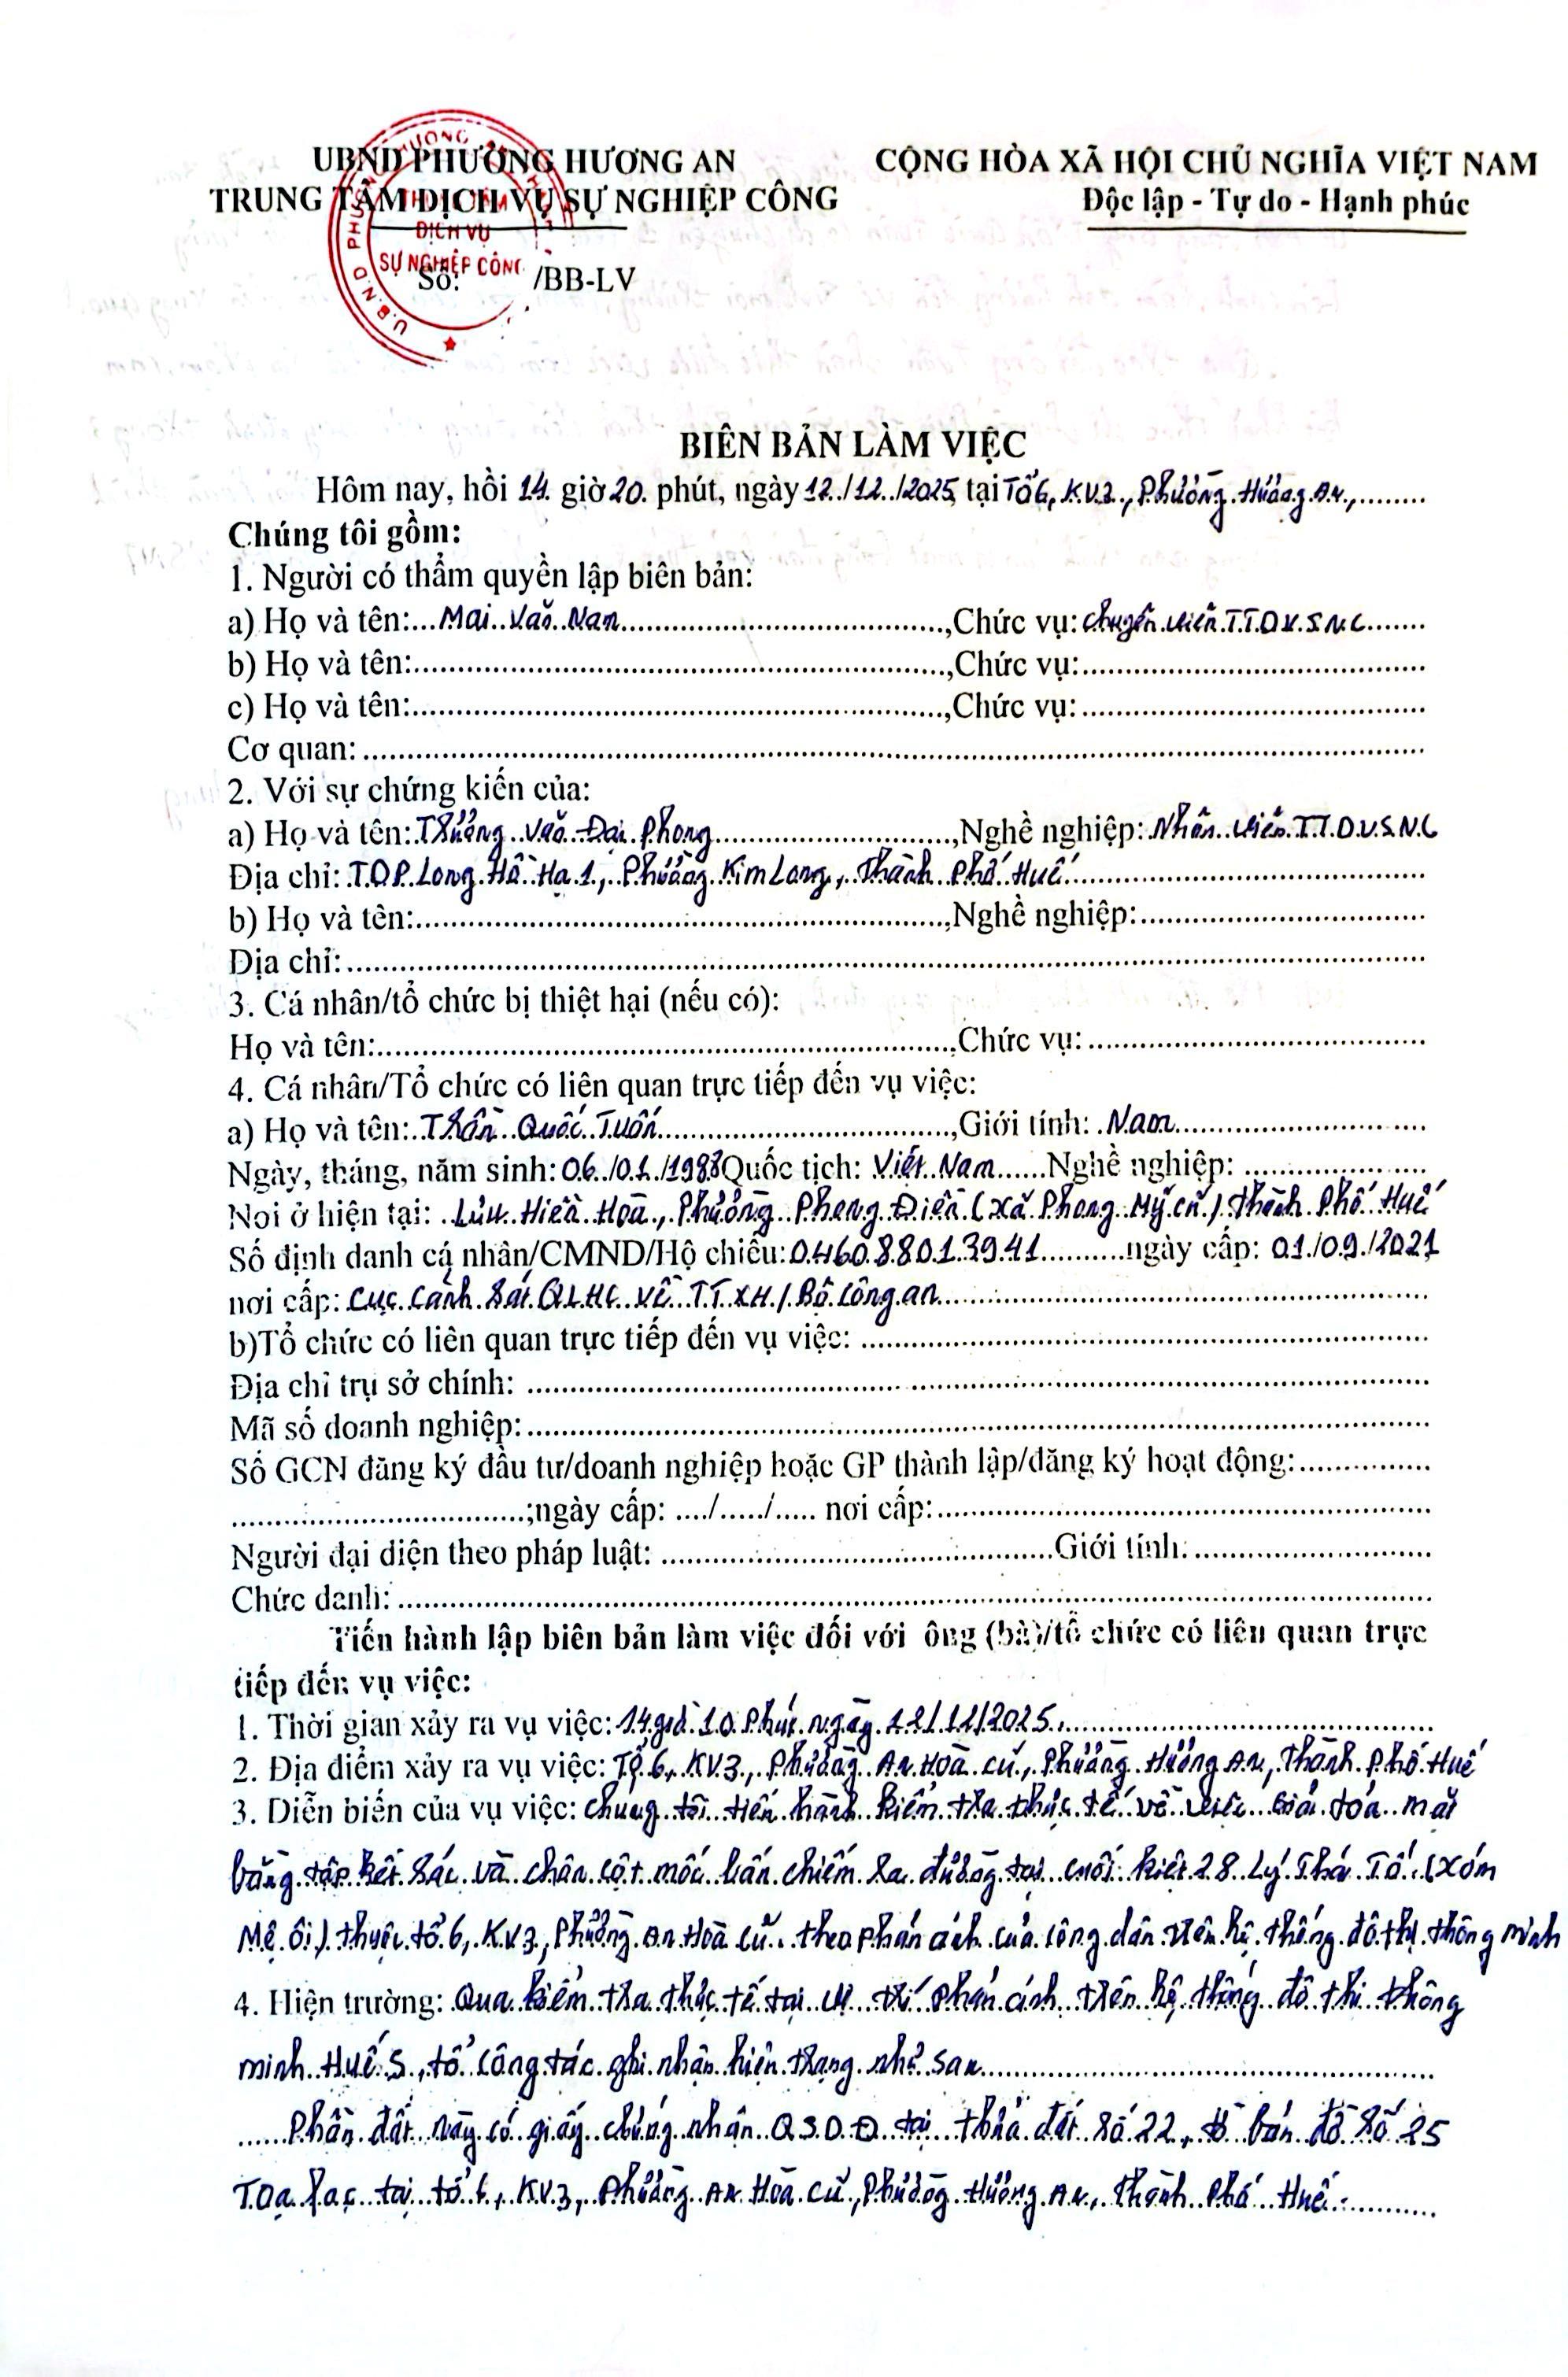 UBND PHƯỜNG HƯƠNG AN
TRUNG TÂM DỊCH VỤ SỰ NGHIỆP CÔNG
CỘNG HÒA XÃ HỘI CHỦ NGHĨA VIỆT NAM
Độc lập - Tự do - Hạnh phúc
DỊCH VỤ
SỰ NGHIỆP CÔNG
Số: /BB-LV
BIÊN BẢN LÀM VIỆC
Hôm nay, hồi 14 giờ 20 phút, ngày 12/12/2025, tại Tổ 6, KV3, Phường Hương An,
Chúng tôi gồm:
1. Người có thẩm quyền lập biên bản:
a) Họ và tên: Mai Văn Nam, Chức vụ: chuyên viên TTDVSNC
b) Họ và tên:, Chức vụ:
c) Họ và tên:, Chức vụ:
Cơ quan:
2. Với sự chứng kiến của:
a) Họ và tên: Trương Văn Đại Phong, Nghề nghiệp: Nhân viên TTDVSNC
Địa chỉ: TDP Long Hồ Hạ 1, Phường Kim Long, Thành Phố Huế
b) Họ và tên:, Nghề nghiệp:
Địa chỉ:
3. Cá nhân/tổ chức bị thiệt hại (nếu có):
Họ và tên:, Chức vụ:
4. Cá nhân/Tổ chức có liên quan trực tiếp đến vụ việc:
a) Họ và tên: Trần Quốc Tuấn, Giới tính: Nam
Ngày, tháng, năm sinh: 06/01/1988 Quốc tịch: Việt Nam Nghề nghiệp:
Nơi ở hiện tại: Lưu Hiền Hoà, Phường Phong Điền (xã Phong Mỹ cũ) Thành Phố Huế
Số định danh cá nhân/CMND/Hộ chiếu: 046088013941 ngày cấp: 01/09/2021
nơi cấp: Cục Cảnh Sát QLHC Về TTXH / Bộ Công an
b)Tổ chức có liên quan trực tiếp đến vụ việc:
Địa chỉ trụ sở chính:
Mã số doanh nghiệp:
Số GCN đăng ký đầu tư/doanh nghiệp hoặc GP thành lập/đăng ký hoạt động:
;ngày cấp: ..../...../..... nơi cấp:
Người đại diện theo pháp luật: Giới tính:
Chức danh:
Tiến hành lập biên bản làm việc đối với ông (bà)/tổ chức có liên quan trực
tiếp đến vụ việc:
1. Thời gian xảy ra vụ việc: 14 giờ 10 Phút ngày 12/12/2025.
2. Địa điểm xảy ra vụ việc: Tổ 6, KV3, Phường An Hoà cũ, Phường Hương An, Thành Phố Huế
3. Diễn biến của vụ việc: chúng tôi tiến hành kiểm tra thực tế về việc Giải tỏa mặt
bằng tập kết rác và chân cột mốc lấn chiếm ra đường tại cuối kiệt 28 Lý Thái Tổ (xóm
Mệ ôi) thuộc tổ 6, KV3, Phường An Hoà cũ theo phản ánh của công dân trên hệ thống đô thị thông minh
4. Hiện trường: Qua kiểm tra thực tế tại vị trí phản ánh trên hệ thống đô thị thông
minh Huế S, tổ công tác ghi nhận hiện trạng như sau
Phần đất này có giấy chứng nhận QSDĐ tại thửa đất số 22, tờ bản đồ số 25
Tọa lạc tại tổ 6, KV3, Phường An Hoà cũ, Phường Hương An, Thành Phố Huế.